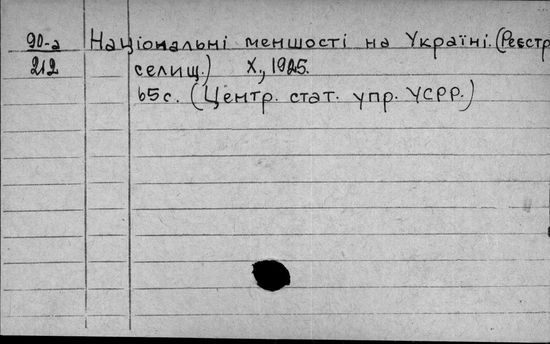 90-а Національні меншості на Україні. (Реєстр
212 селищ.) Х, 1925.
65 с. (Центр. стат. упр. УСРР.)